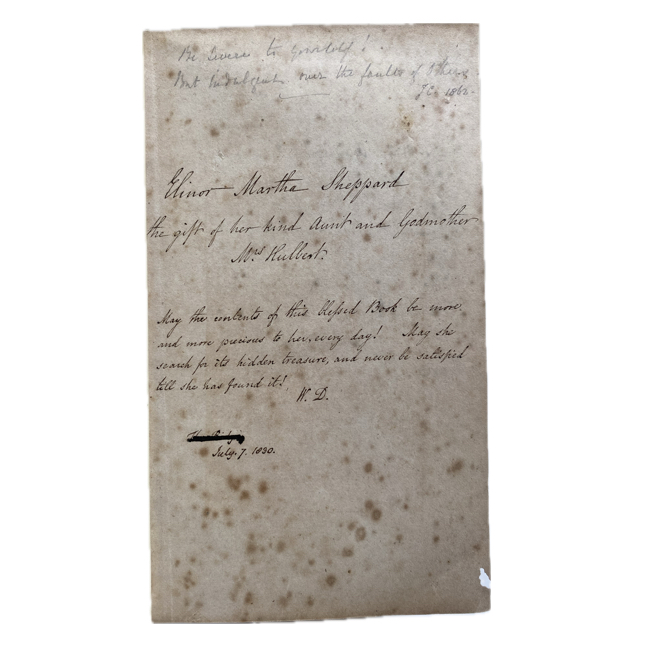 Be severe to yourself!
But indulgent over the faults of others.
1862.
Elinor Martha Sheppard
the gift of her kind Aunt and Godmother
Mrs Hulbert.
May the contents of this blessed Book be more
and more precious to her, every day! May she
search for its hidden treasure, and never be satisfied
till she has found it!
W. D.
July. 7. 1830.